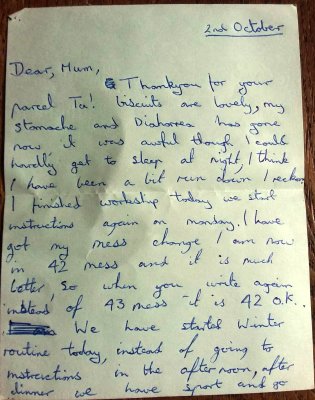 2nd October
Dear, Mum,
Thankyou for your
parcel Ta! biscuits are lovely, my
stomache and Diahorrea has gone
now it was awful though I could
hardly get to sleep at night, I think
I have been a bit run down I reckon
I finished workship today we start
instructions again on monday. I have
got my mess change I am now
in 42 mess and it is much
better, So when you write again
instead of 43 mess it is 42 O.K.
We have started Winter
routine today, instead of going to
instructions in the afternoon, after
dinner we have sport and go